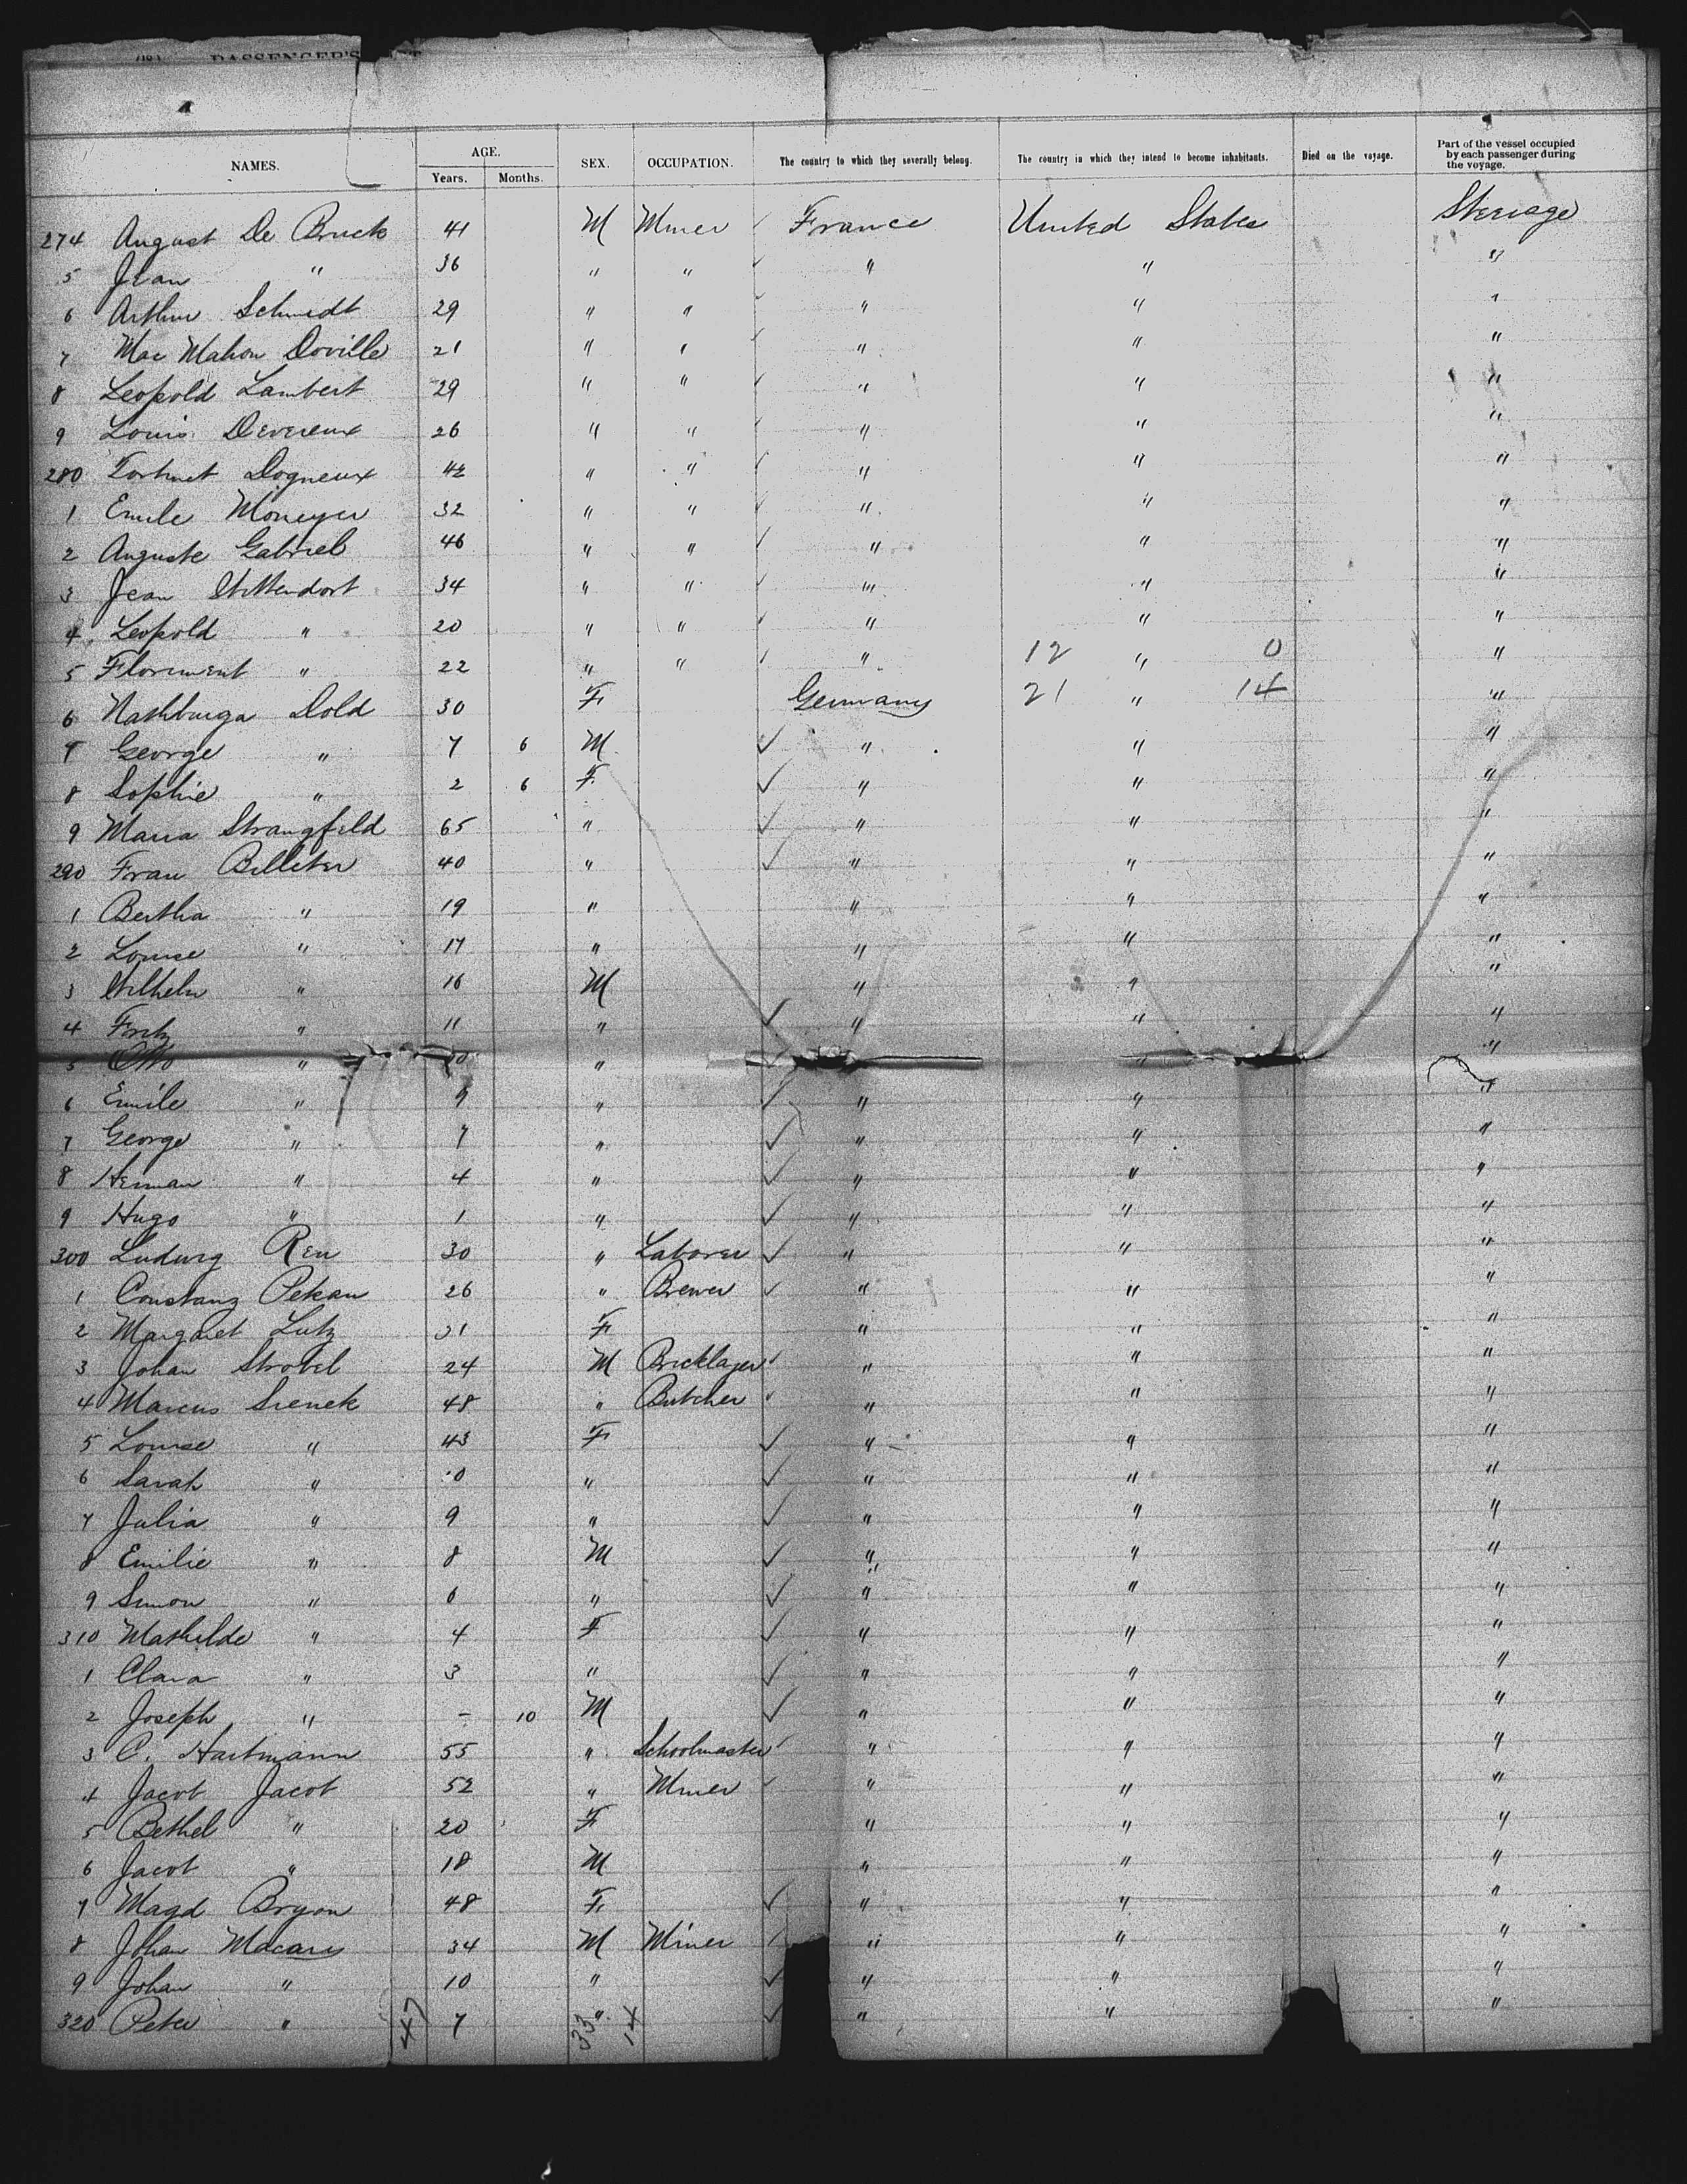 (18) PASSENGER'S
NAMES. AGE. Years. Months. SEX. OCCUPATION. The country to which they severally belong. The country in which they intend to become inhabitants. Died on the voyage. Part of the vessel occupied by each passenger during the voyage.
274 August De Bruck 41 M Miner France United States Steerage
5 Jean " 36 " " " " "
6 Arthur Schmidt 29 " " " " "
7 Mac Mahon Doville 21 " " " " "
8 Leopold Lambert 29 " " " " "
9 Louis Devereux 26 " " " " "
280 Dogneux 42 " " " " "
1 Emile Moneyer 32 " " " " "
2 Auguste Gabriel 46 " " " " "
3 Jean Wittendort 34 " " " " "
4 Leopold " 20 " " " " "
5 Floriment " 22 " " " 12 " 0 "
6 Dold 30 F Germany 21 " 14 "
7 George " 7 6 M " " "
8 Sophie " 2 6 F " " "
9 Maria Strangfild 65 " " " "
290 Frau Billeter 40 " " " "
1 Bertha " 19 " " " "
2 Louise " 17 " " " "
3 Wilhelm " 16 M " " "
4 Fritz " 11 " " " "
5 Otto " " " " "
6 Emile " 9 " " " "
7 George " 7 " " " "
8 Herman " 4 " " " "
9 Hugo " 1 " " " "
300 Ludwig Reu 30 " Laborer " " "
1 Constanz Pekan 26 " Brewer " " "
2 Margaret Lutz 31 F " " "
3 Johan Strobel 24 M Bricklayer " " "
4 Marcus Sienek 48 " Butcher " " "
5 Louise " 43 F " " "
6 Sarah " " " " "
7 Julia " 9 " " " "
8 Emilie " 8 M " " "
9 Simon " 6 " " " "
310 Mathilde " 4 F " " "
1 Clara " 3 " " " "
2 Joseph " – 10 M " " "
3 C. Hartmann 55 " Schoolmaster " " "
4 Jacob Jacob 52 " Miner " " "
5 Bethel " 20 F " " "
6 Jacob " 18 M " " "
7 Magd Bryon 48 F " " "
8 Johan Macary 34 M Miner " " "
9 Johan " 10 " " " "
320 Peter " 7 " " " "
47 33 14